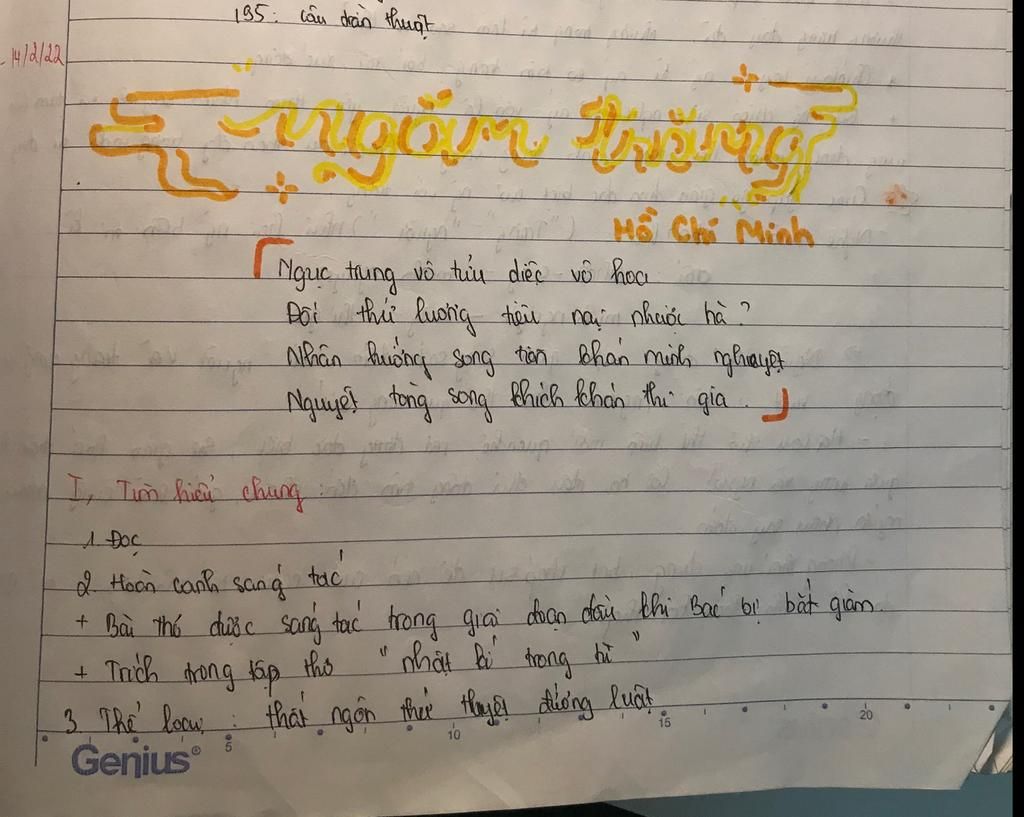 195: câu trần thuật
14/2/22
Ngắm trăng
Hồ Chí Minh
Ngục trung vô tửu diệc vô hoa
Đối thử lương tiêu nại nhược hà?
Nhân hướng song tiền khán minh nguyệt
Nguyệt tòng song khích khán thi gia.
I, Tìm hiểu chung:
1. Đọc
2. Hoàn cảnh sáng tác
+ Bài thơ được sáng tác trong giai đoạn đầu khi Bác bị bắt giam.
+ Trích trong tập thơ "nhật kí trong tù"
3. Thể loại: thất ngôn tứ tuyệt đường luật
5 10 15 20
Genius®